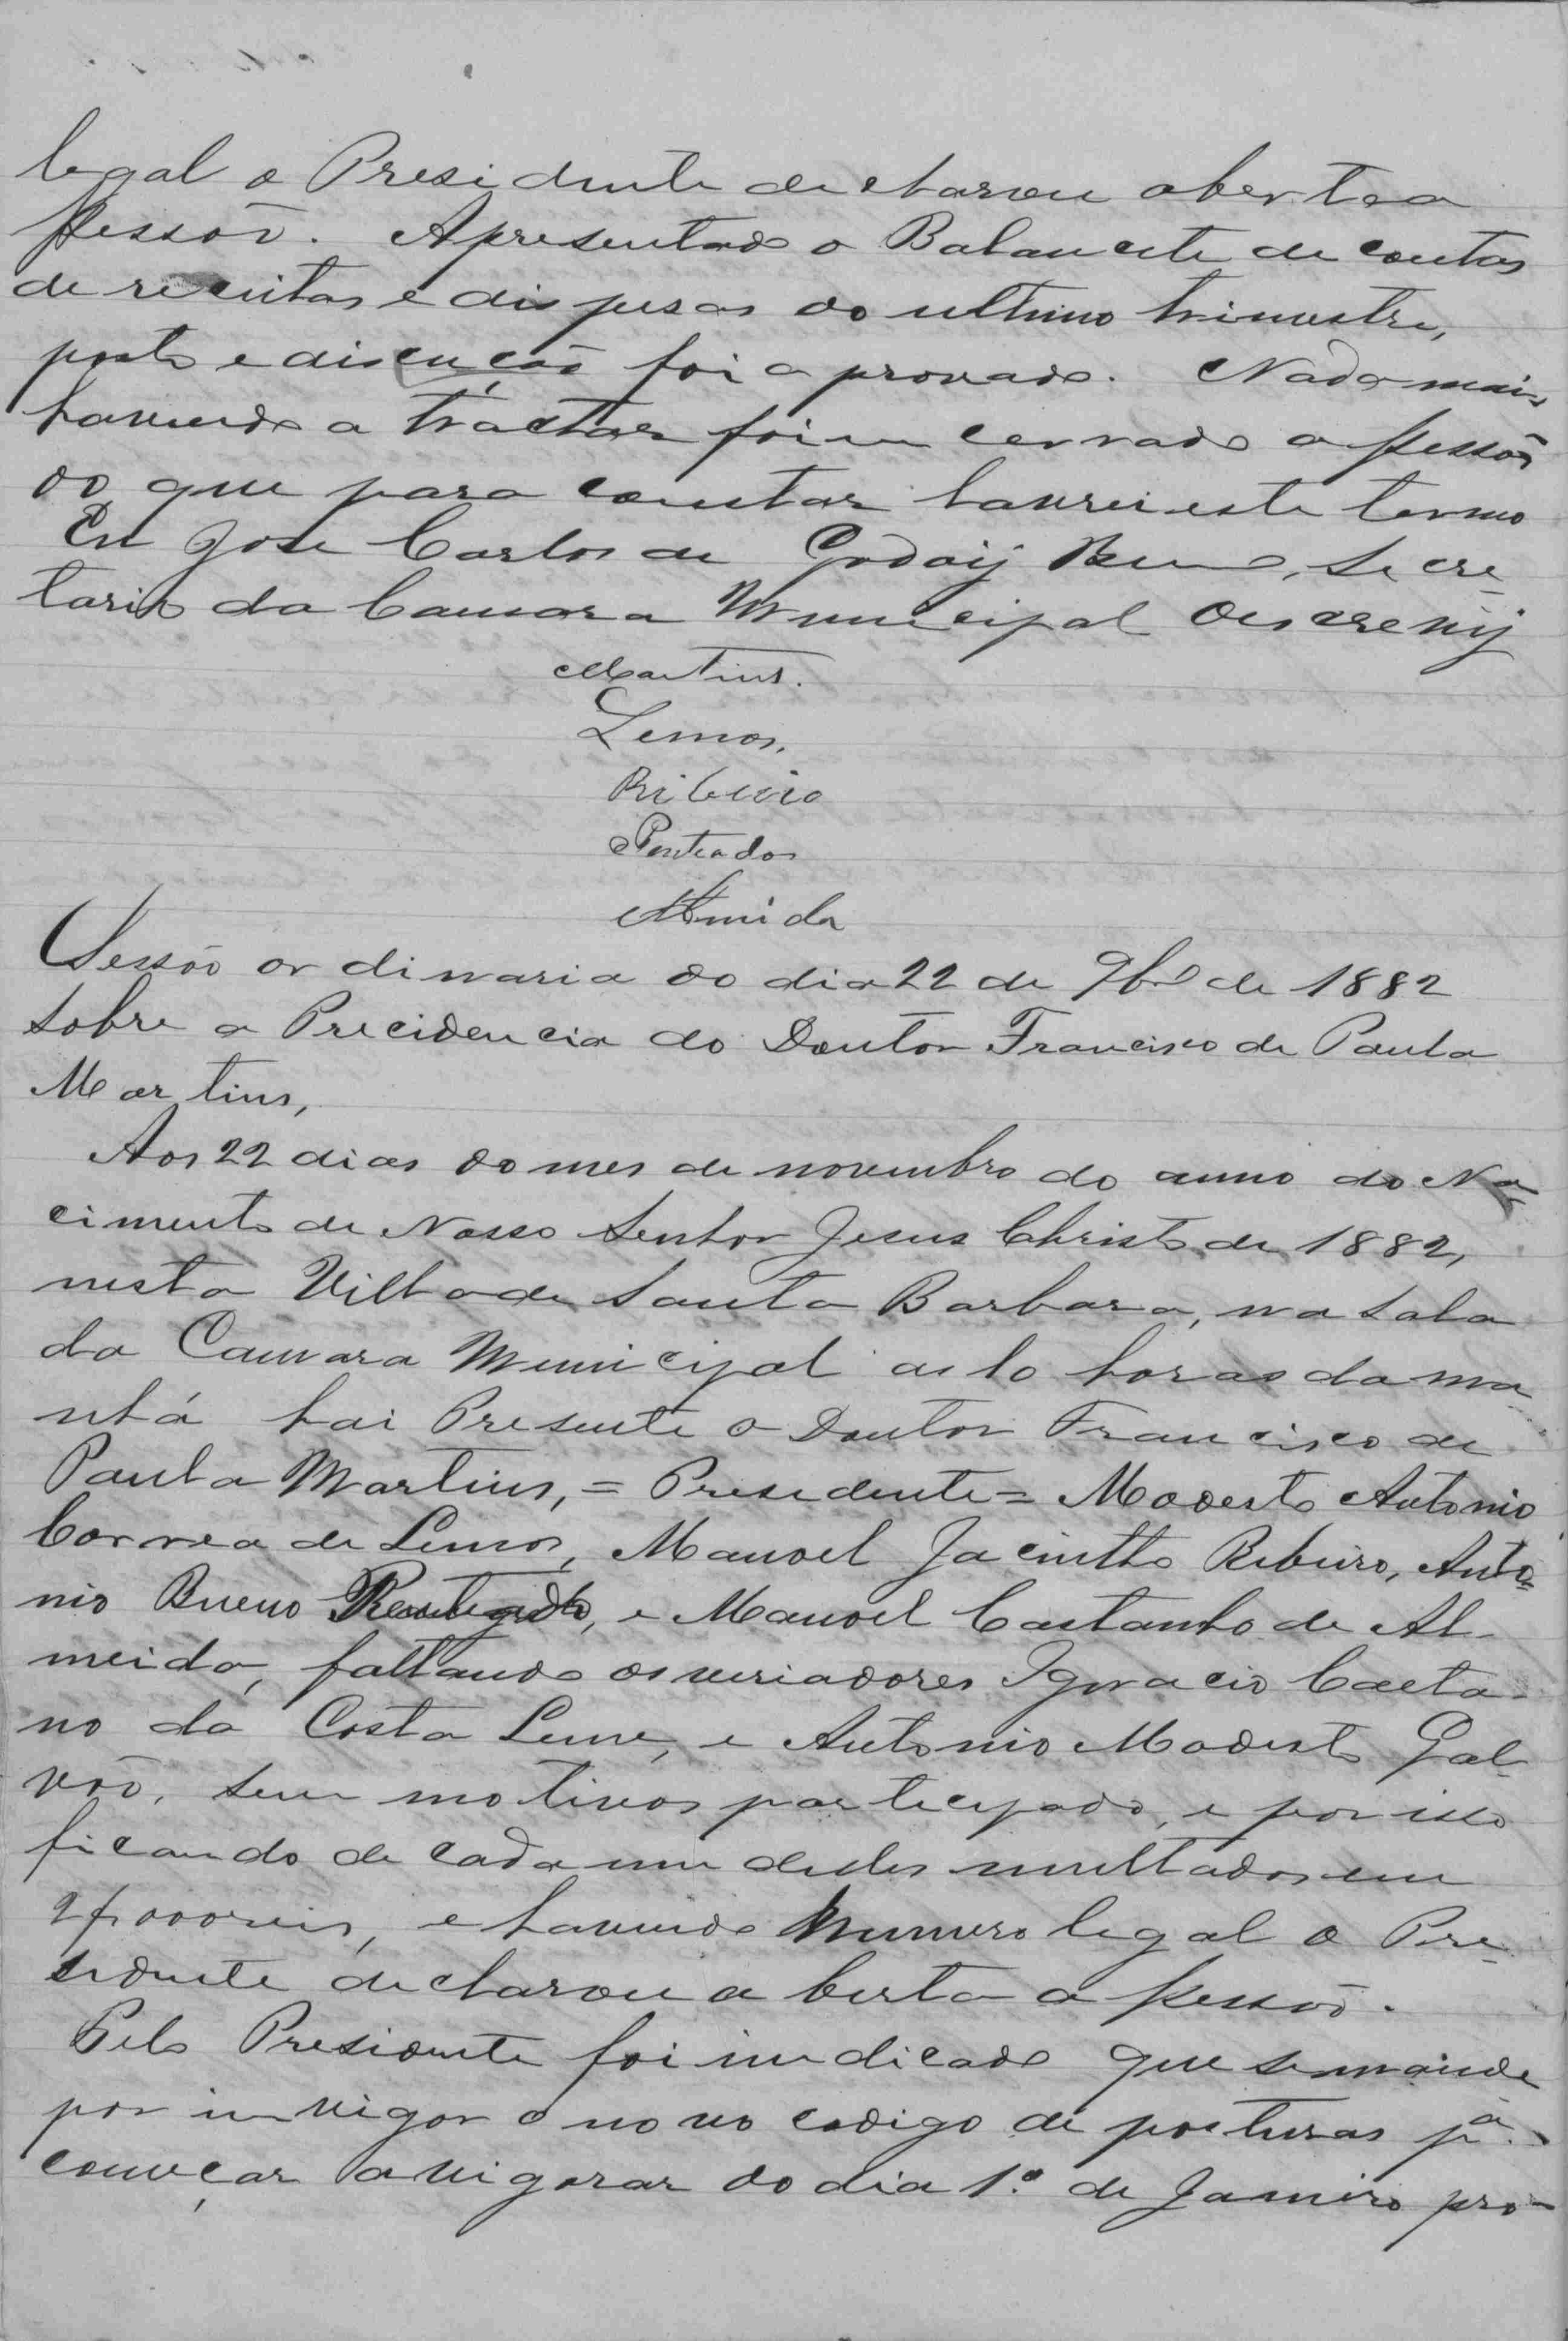 legal o Presidente declarou aberta a
sessão. Apresentado o Balancete de contas
de receitas e dispesas do ultimo trimestre,
posto e discução foi aprovado. Nada mais
havendo a tractar foi en cerrado a sessão
do que para constar lavrei este termo
Eu Jose Carlos de Godoij Bueno, Secre-
tario da Camara Municipal Oescrevij
Martins.
Lemos.
Ribeiro
Penteado
Almeida
Sessão ordinaria do dia 22 de 9bro de 1882
sobre a Precidencia do Doutor Francisco de Paula
Martins,
Aos 22 dias do mes de novembro do anno do Na
cimento de Nosso Senhor Jesus Christo de 1882,
nesta Villa de Santa Barbara, na sala
da Camara Municipal as 10 horas da ma
nhá hai Presente o Doutor Francisco de
Paula Martins, = Presedente = Modesto Antonio
Correa de Lemos, Manoel Jacintho Ribeiro, Anto-
nio Bueno e Manoel Castanho de Al-
meida, faltando os veriadores Ignacio Caeta-
no da Costa Leme, e Antonio Modesto Gal-
vão, sem motivos participado, e por isso
ficando de cada um delles multados em
2$000 reis, e havendo numero legal o Pre-
sidente declarou aberta a sessão.
Pelo Presidente foi indicado que se mande
por in vigor o novo codigo de posturas pª
começar a vigorar do dia 1º de Janeiro pro-